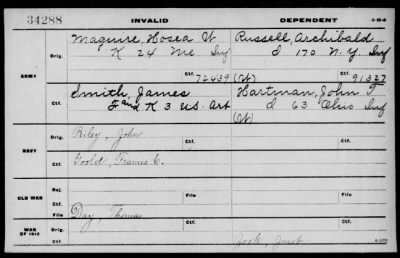 34288 INVALID DEPENDENT
Maguire, Hosea W Russell, Archibald
Orig. K 24 Me Inf D 170 N.Y. Inf
ARMY Ctf. 72439 (W) Ctf. 91327
Smith, James Hartman, John F
Ctf. F and K 3 US. Art D 63 Ohio Inf
(W)
Orig. Riley, John Orig.
NAVY
Ctf. Goold, Francis E. Ctf.
Rej.
OLD WAR File File
Ctf.
Day, Thomas
WAR OF 1812 Orig. Ctf. Ctf.
Zook, Jacob